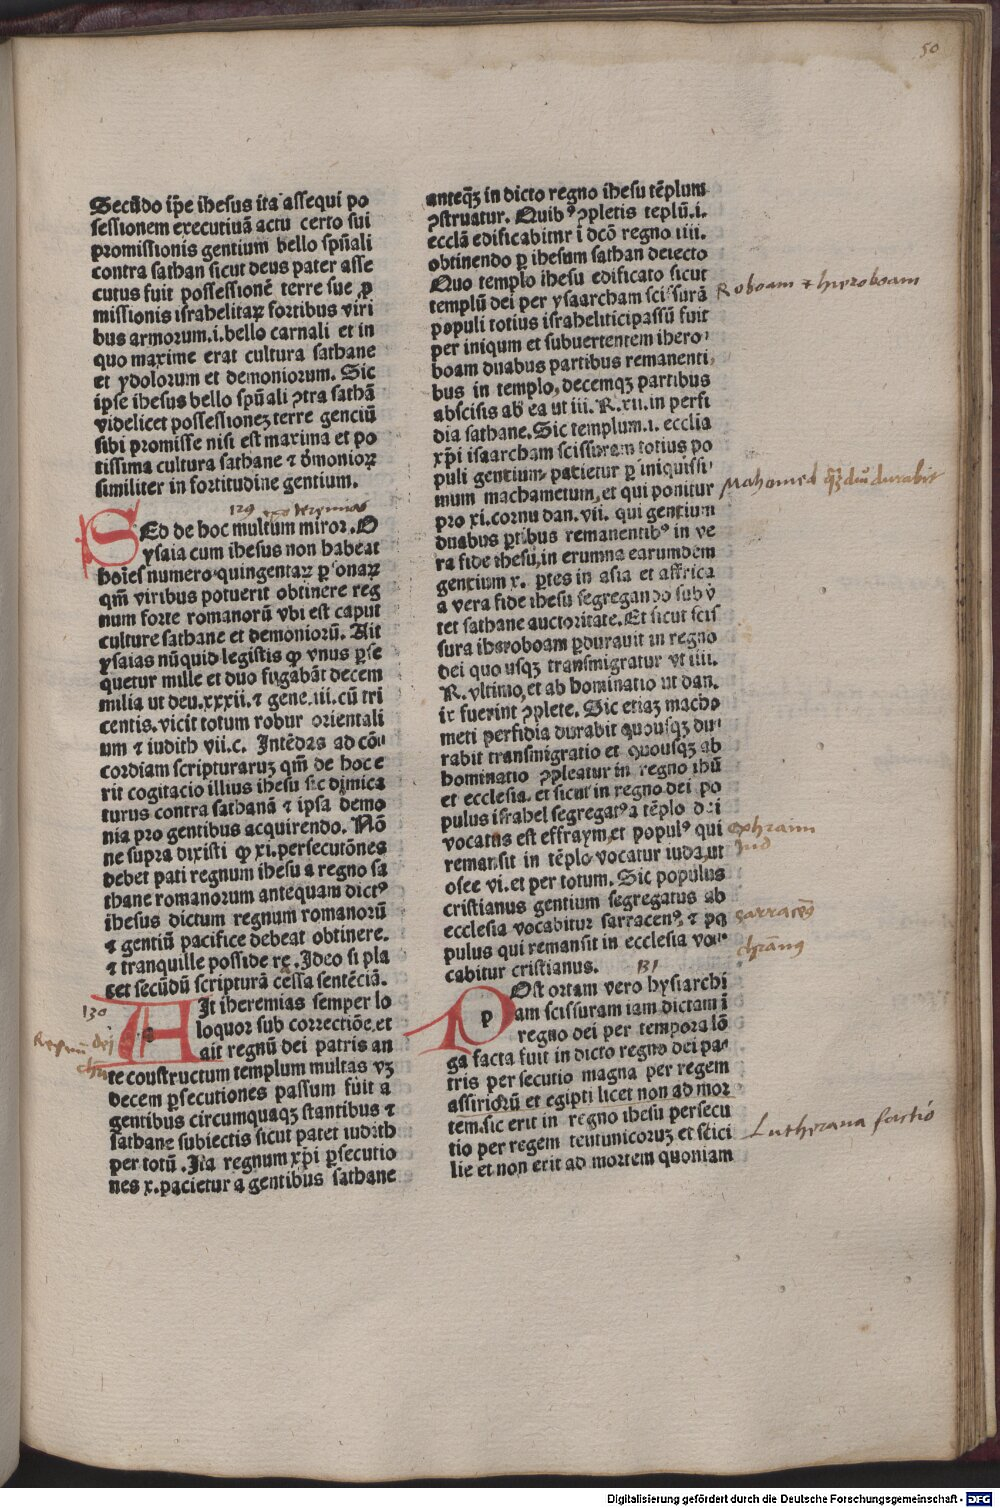 50
Secūdo ip̄e ihesus ita assequi po
sessionem executiuā actu certo sui
promissionis gentium bello spūali
contra sathan sicut deus pater asse
cutus fuit possessionē terre sue ꝑ
missionis israhelitaꝝ fortibus viri
bus armorum.i.bello carnali et in
quo maxime erat cultura sathane
et ydolorum et demoniorum. Sic
ipse ihesus bello spūali ꝯtra sathā
videlicet possessioneꝫ terre genciū
sibi promisse nisi est maxima et po
tissima cultura sathane ⁊ dēmonioꝝ
similiter in fortitudine gentium.
129
SEd de hoc multum miror. O
ysaia cum ihesus non habeat
hoīes numero quingentaꝝ ꝑsonaꝝ
qm̄ viribus potuerit obtinere reg
num forte romanorū vbi est caput
culture sathane et demoniorū. Ait
ysaias nūquid legistis ꝙ vnus ꝑse
quetur mille et duo fugabāt decem
milia ut deu.xxxii.⁊ gene.iii.cū tri
centis.vicit totum robur orientali
um ⁊ iudith vii.c. Intēdas ad cō
cordiam scripturaruꝫ qm̄ de hoc e
rit cogitacio illius ihesu sic dimica
turus contra sathanā ⁊ ipsa demo
nia pro gentibus acquirendo. Nō
ne supra dixisti ꝙ xi.persecutōnes
debet pati regnum ihesu a regno sa
thane romanorum antequam dictꝰ
ihesus dictum regnum romanorū
⁊ gentiū pacifice debeat obtinere.
⁊ tranquille posside re. Ideo si pla
cet secūdū scripturā cessa sentēciā.
130
AIt iheremias semper lo
loquor sub correctiōe.et
ait regnū dei patris an
te constructum templum multas vꝫ
decem ꝑsecutiones passum fuit a
gentibus circumquaqꝫ stantibus ⁊
sathane subiectis sicut patet iudith
per totū. Ita regnum xp̄i ꝑsecutio
nes x.pacietur a gentibus sathane
Regnū dei
anteqꝫ in dicto regno ihesu tēplum
ꝯstruatur. Quibꝰ ꝯpletis teplū.i.
ecclā edificabitur ī dcō regno iiii.
obtinendo ꝑ ihesum sathan deiecto
Quo templo ihesu edificato sicut
templū dei per ysaarcham scissurā
populi totius israhelitici passū fuit
per iniqum et subuertentem ihero
boam duabus partibus remanenti
bus in templo, decemqꝫ partibus
abscisis ab ea ut iii. R.xii.in perfi
dia sathane. Sic templum.i. ecclia
xp̄i isaarcham scissuram totius po
puli gentium patietur ꝑ iniquissi
mum machametum, et qui ponitur
pro xi.cornu dan. vii. qui gentium
duabus ꝑtibus remanentibꝰ in ve
ra fide ihesu, in erumna earumdem
gentium x. ꝑtes in asia et affrica
a vera fide ihesu segregando sub ỳ
tet sathane auctoritate. Et sicut scis
sura iheroboam ꝑdurauit in regno
dei quo usqꝫ transmigratur vt iiii.
R. vltimo, et ab hominatio ut dan.
ix fuerint ꝯplete. Sic etiaꝫ macho
meti perfidia durabit quousqꝫ du
rabit transmigratio et quousqꝫ ab
hominatio ꝯpleatur in regno ihū
et ecclesia. et sicut in regno dei po
pulus israhel segregatꝰ a tēplo dei
vocatus est effraym, et populꝰ qui
remansit in tēplo vocatur iuda, ut
osee vi. et per totum. Sic populus
cristianus gentium segregatus ab
ecclesia vocabitur sarracenꝰ, ⁊ po
pulus qui remansit in ecclesia vo
cabitur cristianus.
131
POst ortam vero hysiarchi
am scissuram iam dictam ī
regno dei per tempora lō
ga facta fuit in dicto regno dei pa
tris per secutio magna per regem
assiriorū et egipti licet non ad mor
tem.sic erit in regno ihesu persecu
tio per regem teutunicoruꝫ et scici
lie et non erit ad mortem quoniam
Roboam ⁊ hieroboam
Mahomed qꝫdiu durabit
ephraim
Jud
sarracenꝰ
chrānus
Lutherana factio
Digitalisierung gefördert durch die Deutsche Forschungsgemeinschaft - DFG